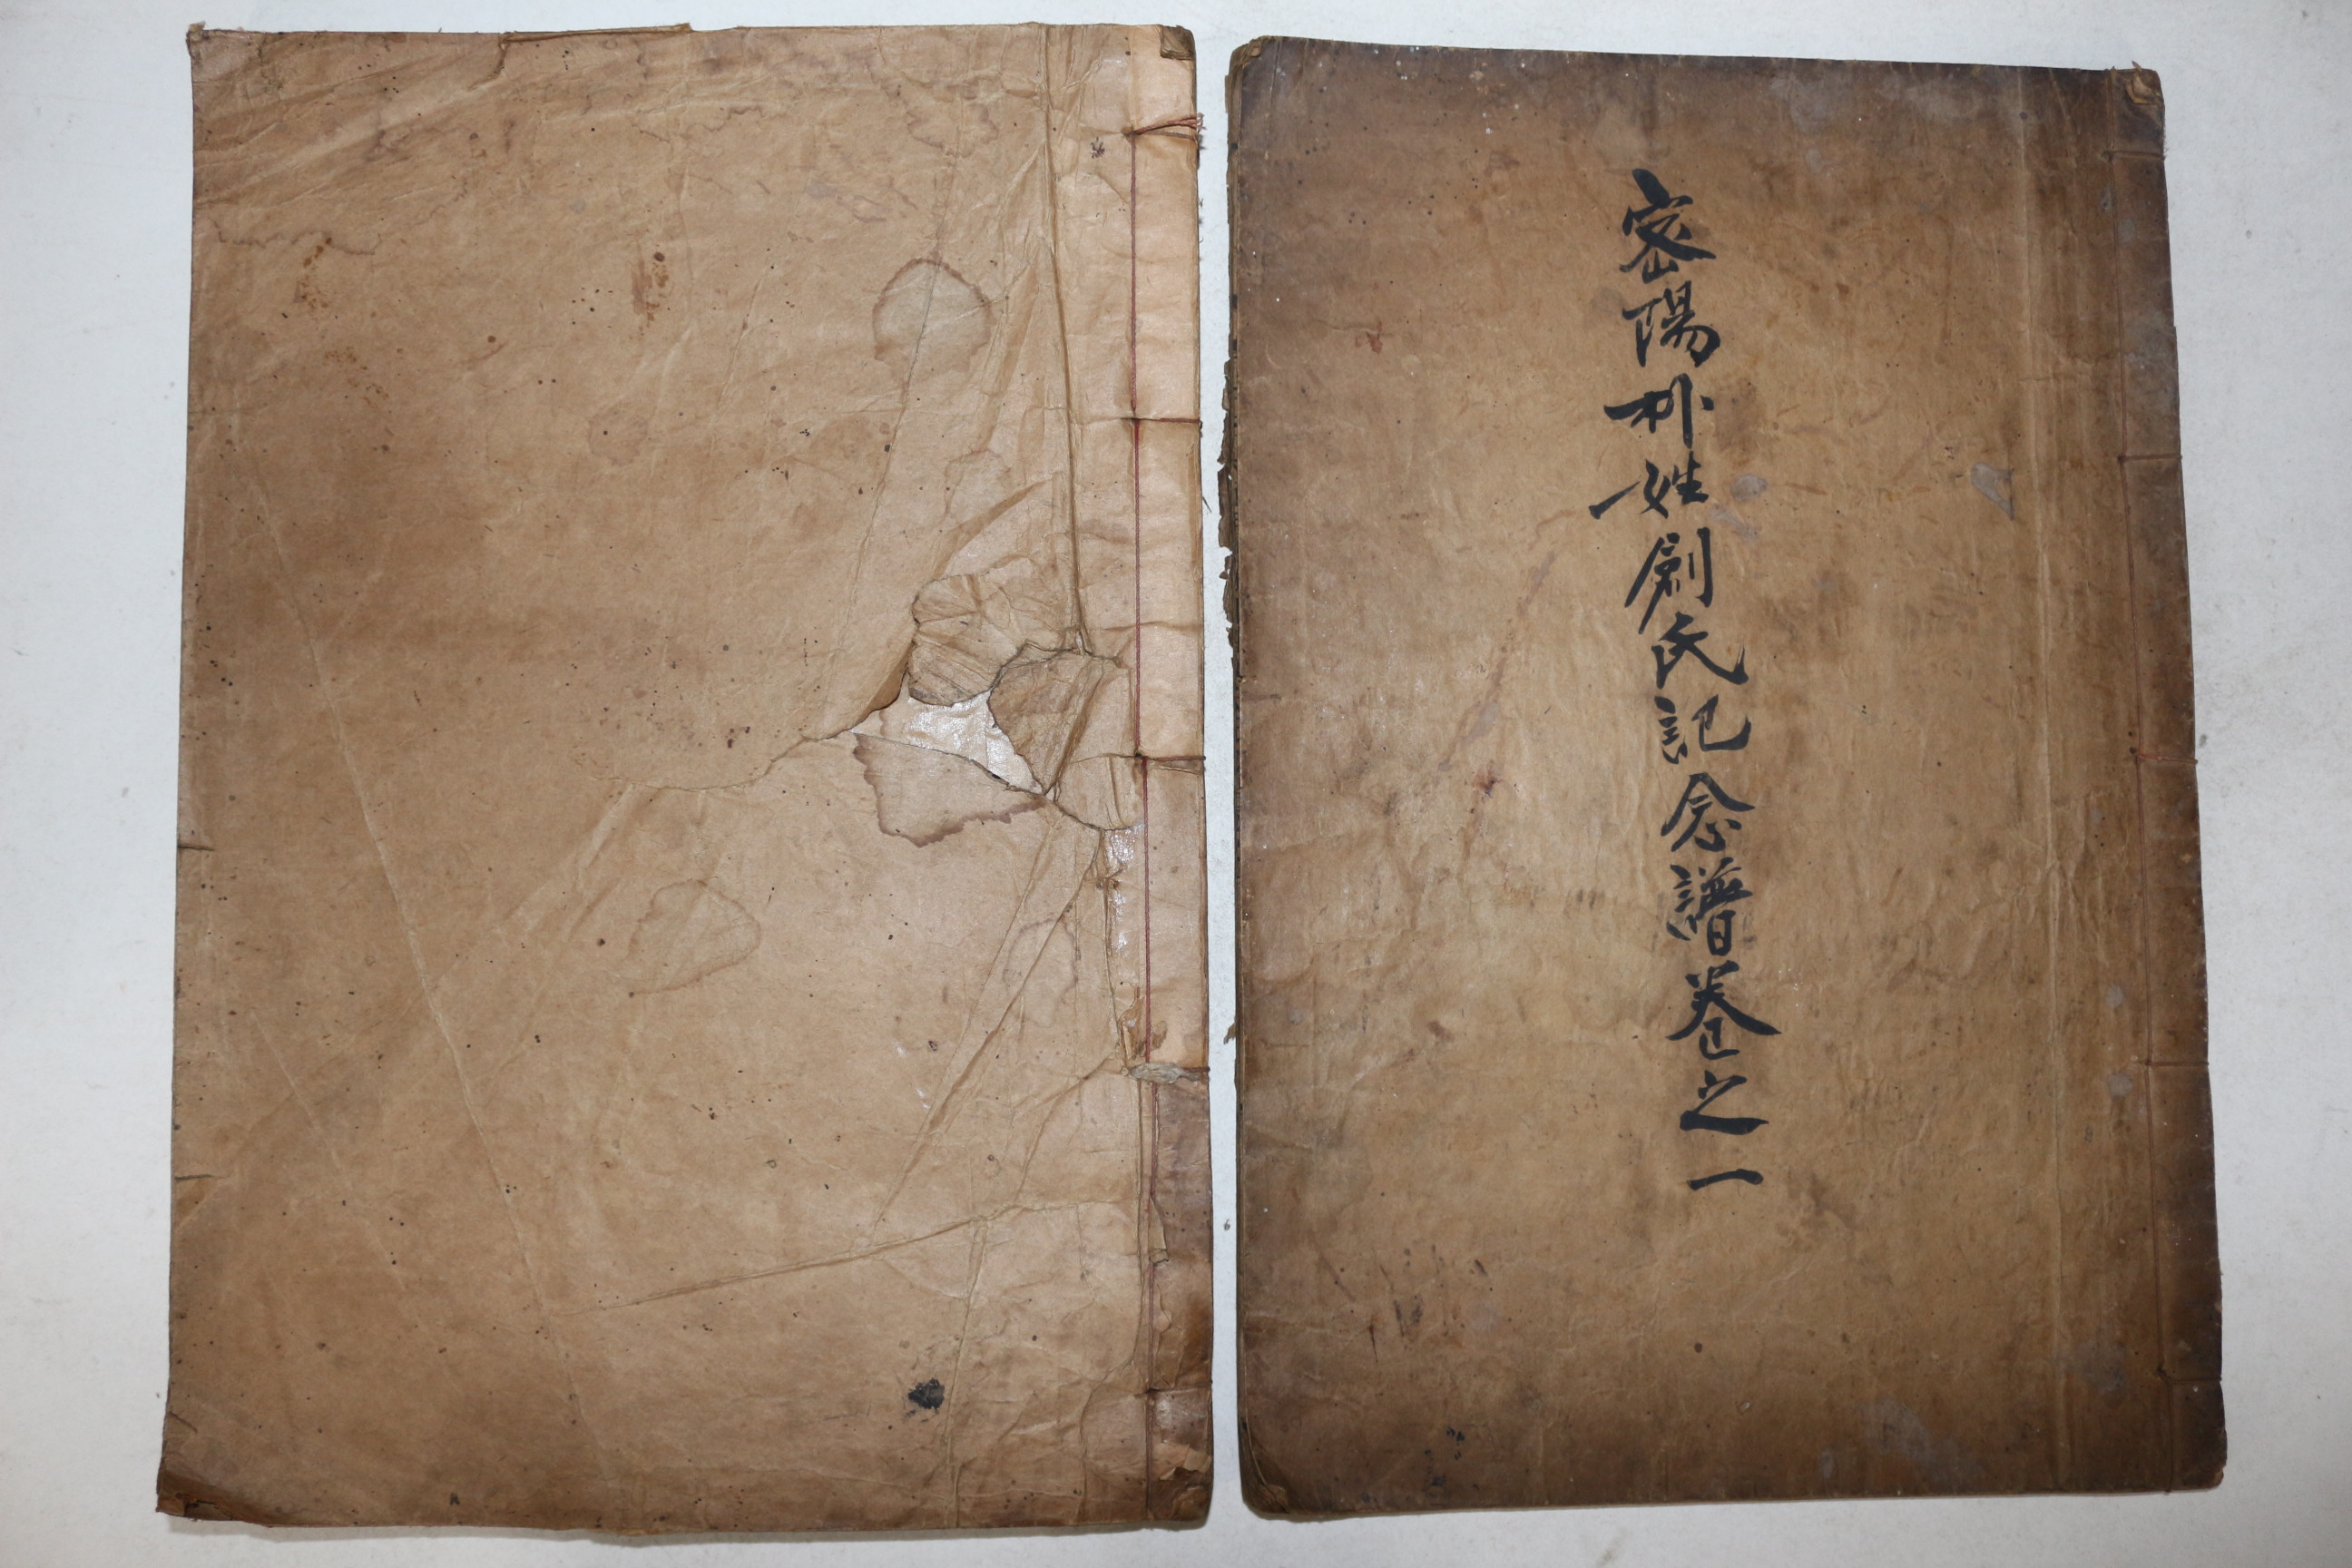 密陽朴姓創氏記念譜卷之一